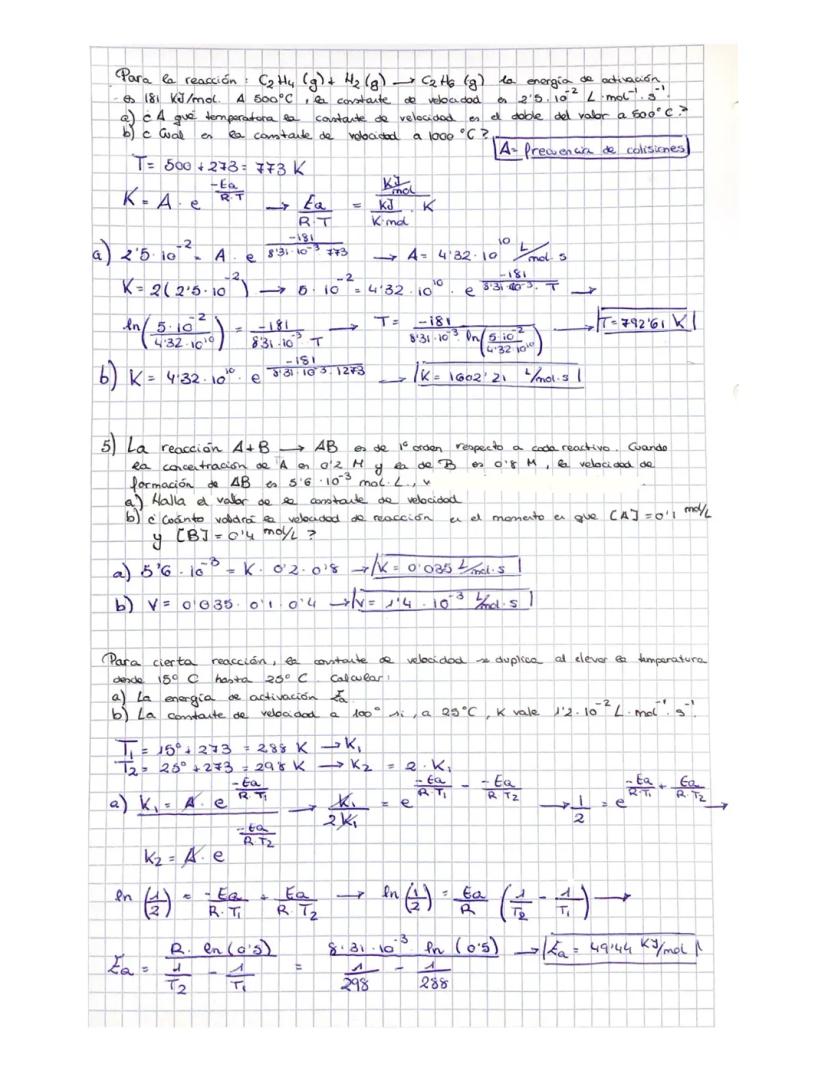 Para la reacción : C2H4 (g) + H2 (g) → C2H6 (g) la energía de activación
es 181 KJ/mol. A 500°C, la constante de velocidad es 2'5·10⁻² L·mol⁻¹·s⁻¹
a) ¿A qué temperatura la constante de velocidad es el doble del valor a 500°C?
b) ¿Cual es la constante de velocidad a 1000 °C?
A= frecuencia de colisiones
T= 500 + 273 = 773 K
K = A · e^(-Ea/R·T) → Ea/R·T = (KJ/mol)/(KJ/K·mol · K)
a) 2'5·10⁻² = A · e^(-181/8'31·10⁻³·773) → A = 4'32·10¹⁰ L/mol·s
K = 2(2'5·10⁻²) → 5·10⁻² = 4'32·10¹⁰ · e^(-181/8'31·10⁻³·T) →
ln(5·10⁻²/4'32·10¹⁰) = -181/8'31·10⁻³ T → T = -181/8'31·10⁻³ ln(5·10⁻²/4'32·10¹⁰) → T = 792'61 K
b) K = 4'32·10¹⁰ · e^(-181/8'31·10⁻³·1273) → K = 1602'21 L/mol·s
5) La reacción A+B → AB es de 1º orden respecto a cada reactivo. Cuando
la concentración de A es 0'2 M y la de B es 0'8 M, la velocidad de
formación de AB es 5'6·10⁻³ mol·L.,
a) Halla el valor de la constante de velocidad
b) ¿Cuánto valdrá la velocidad de reacción en el momento en que [A] = 0'1 mol/L
y [B] = 0'4 mol/L ?
a) 5'6·10⁻³ = K·0'2·0'8 → K = 0'035 L/mol·s
b) V = 0'035·0'1·0'4 → V = 1'4·10⁻³ L/mol·s
Para cierta reacción, la constante de velocidad se duplica al elevar la temperatura
desde 15° C hasta 25° C. Calcular:
a) La energía de activación Ea
b) La constante de velocidad a 100° si, a 25°C, K vale 1'2·10⁻² L·mol⁻¹·s⁻¹.
T₁ = 15° + 273 = 288 K → K₁
T₂ = 25° + 273 = 298 K → K₂ = 2·K₁
a) K₁ = A·e^(-Ea/R·T₁) → K₁/2K₁ = e^(-Ea/R·T₁ - -Ea/R·T₂) → 1/2 = e^(-Ea/R·T₁ + Ea/R·T₂) →
K₂ = A·e^(-Ea/R·T₂)
ln(1/2) = -Ea/R·T₁ + Ea/R·T₂ → ln(1/2) = Ea/R (1/T₂ - 1/T₁) →
Ea = R·ln(0'5)/(1/T₂ - 1/T₁) = 8'31·10⁻³ ln(0'5)/(1/298 - 1/288) → Ea = 49'44 KJ/mol